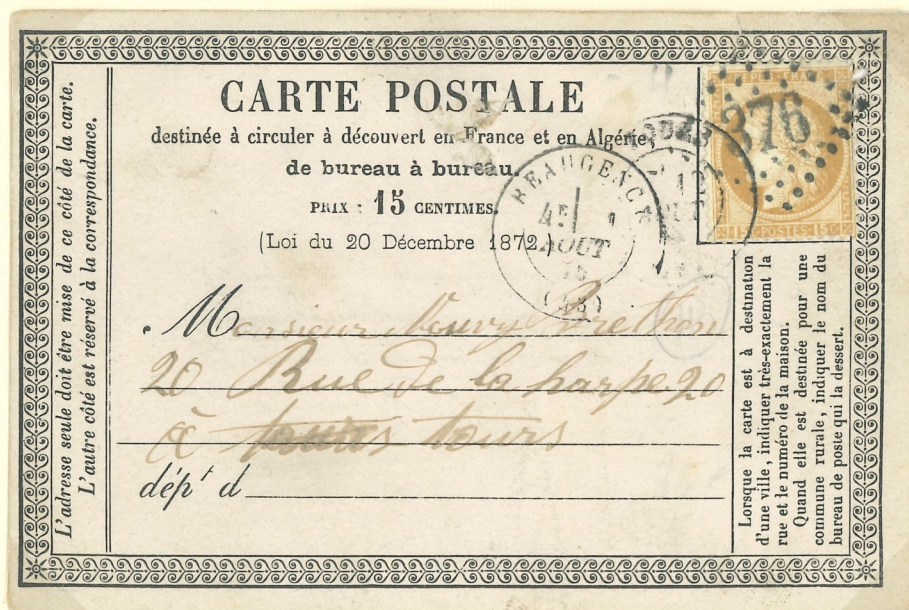 L'adresse seule doit être mise de ce côté de la carte.
L'autre côté est réservé à la correspondance.
CARTE POSTALE
destinée à circuler à découvert en France et en Algérie,
de bureau à bureau.
PRIX : 15 CENTIMES.
(Loi du 20 Décembre 1872.)
BEAUGENCY
4E 1
AOUT
75
(43)
376
15c POSTES 15c
Monsieur Brethon
20 Rue de la harpe 20
à tours
dépt d
Lorsque la carte est à destination
d'une ville, indiquer très-exactement la
rue et le numéro de la maison.
Quand elle est destinée pour une
commune rurale, indiquer le nom du
bureau de poste qui la dessert.